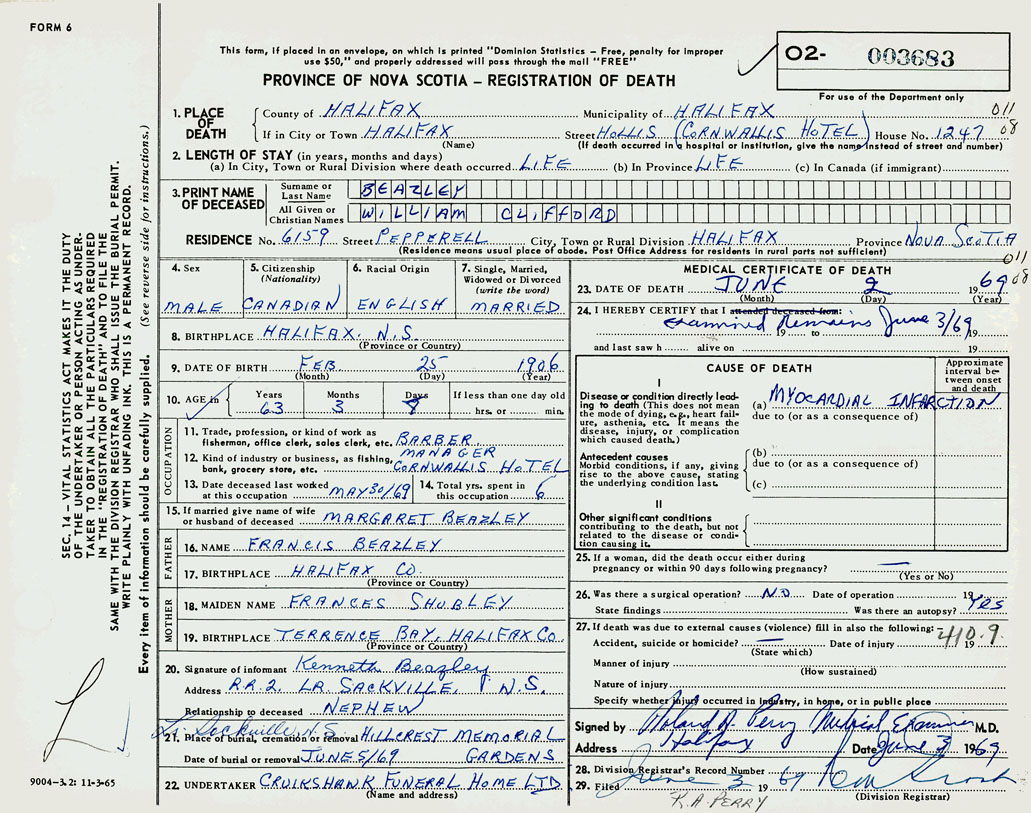 FORM 6
This form, if placed in an envelope, on which is printed "Dominion Statistics – Free, penalty for improper
use $50," and properly addressed will pass through the mail "FREE"
PROVINCE OF NOVA SCOTIA – REGISTRATION OF DEATH
O2- 003683
For use of the Department only
1. PLACE OF DEATH
County of HALIFAX Municipality of HALIFAX 011
If in City or Town HALIFAX Street HOLLIS (CORNWALLIS HOTEL) House No. 1247 08
(Name) (If death occurred in a hospital or institution, give the name instead of street and number)
2. LENGTH OF STAY (in years, months and days)
(a) In City, Town or Rural Division where death occurred. LIFE (b) In Province LIFE (c) In Canada (if immigrant)
3. PRINT NAME OF DECEASED
Surname or Last Name BEAZLEY
All Given or Christian Names WILLIAM CLIFFORD
RESIDENCE No. 6159 Street PEPPERELL City, Town or Rural Division HALIFAX Province NOVA SCOTIA
(Residence means usual place of abode. Post Office Address for residents in rural parts not sufficient) 011
4. Sex
MALE
5. Citizenship
(Nationality)
CANADIAN
6. Racial Origin
ENGLISH
7. Single, Married,
Widowed or Divorced
(write the word)
MARRIED
8. BIRTHPLACE HALIFAX. N.S.
(Province or Country)
9. DATE OF BIRTH FEB 25 1906
(Month) (Day) (Year)
10. AGE in Years Months Days If less than one day old
63 3 8 hrs. or min.
OCCUPATION
11. Trade, profession, or kind of work as
fisherman, office clerk, sales clerk, etc. BARBER
MANAGER
12. Kind of industry or business, as fishing,
bank, grocery store, etc. CORNWALLIS HOTEL
13. Date deceased last worked
at this occupation MAY 30/69
14. Total yrs. spent in
this occupation 6
15. If married give name of wife
or husband of deceased MARGARET BEAZLEY
FATHER
16. NAME FRANCIS BEAZLEY
17. BIRTHPLACE HALIFAX CO.
(Province or Country)
MOTHER
18. MAIDEN NAME FRANCES SHUBLEY
19. BIRTHPLACE TERRENCE BAY, HALIFAX CO.
(Province or Country)
20. Signature of informant Kenneth Beazley
Address R.R.2, LR SACKVILLE, N.S.
Relationship to deceased NEPHEW
Lr. Sackville, N.S.
21. Place of burial, cremation or removal HILLCREST MEMORIAL
Date of burial or removal JUNE 5/69 GARDENS
22. UNDERTAKER CRUIKSHANK FUNERAL HOME LTD
(Name and address)
MEDICAL CERTIFICATE OF DEATH
23. DATE OF DEATH JUNE 2 1969 08
(Month) (Day) (Year)
24. I HEREBY CERTIFY that I attended deceased from:
Examined Remains June 3/69 19 to 19
and last saw h alive on 19
CAUSE OF DEATH
Approximate interval between onset and death
I
Disease or condition directly leading to death (This does not
mean the mode of dying, e.g., heart failure, asthenia, etc. It means the
disease, injury, or complication
which caused death.)
(a) MYOCARDIAL INFARCTION
due to (or as a consequence of)
Antecedent causes
Morbid conditions, if any, giving
rise to the above cause, stating
the underlying condition last.
(b)
due to (or as a consequence of)
(c)
II
Other significant conditions
contributing to the death, but not
related to the disease or condition causing it.
25. If a woman, did the death occur either during
pregnancy or within 90 days following pregnancy? —
(Yes or No)
26. Was there a surgical operation? NO Date of operation 19
State findings Was there an autopsy? Yes
27. If death was due to external causes (violence) fill in also the following: 410.9
Accident, suicide or homicide? — Date of injury 19
(State which)
Manner of injury
(How sustained)
Nature of injury
Specify whether injury occurred in industry, in home, or in public place
Signed by Roland A. Perry Medical Examiner M.D.
Address Halifax Date June 3 1969
28. Division Registrar's Record Number
29. Filed June 3 1969
(Division Registrar)
R.A. PERRY
SEC. 14 – VITAL STATISTICS ACT MAKES IT THE DUTY
OF THE UNDERTAKER OR PERSON ACTING AS UNDER-
TAKER TO OBTAIN ALL THE PARTICULARS REQUIRED
IN THE "REGISTRATION OF DEATH" AND TO FILE THE
SAME WITH THE DIVISION REGISTRAR WHO SHALL ISSUE THE BURIAL PERMIT.
WRITE PLAINLY WITH UNFADING INK. THIS IS A PERMANENT RECORD.
Every item of information should be carefully supplied. (See reverse side for instructions.)
9004–3.2: 11-3-65